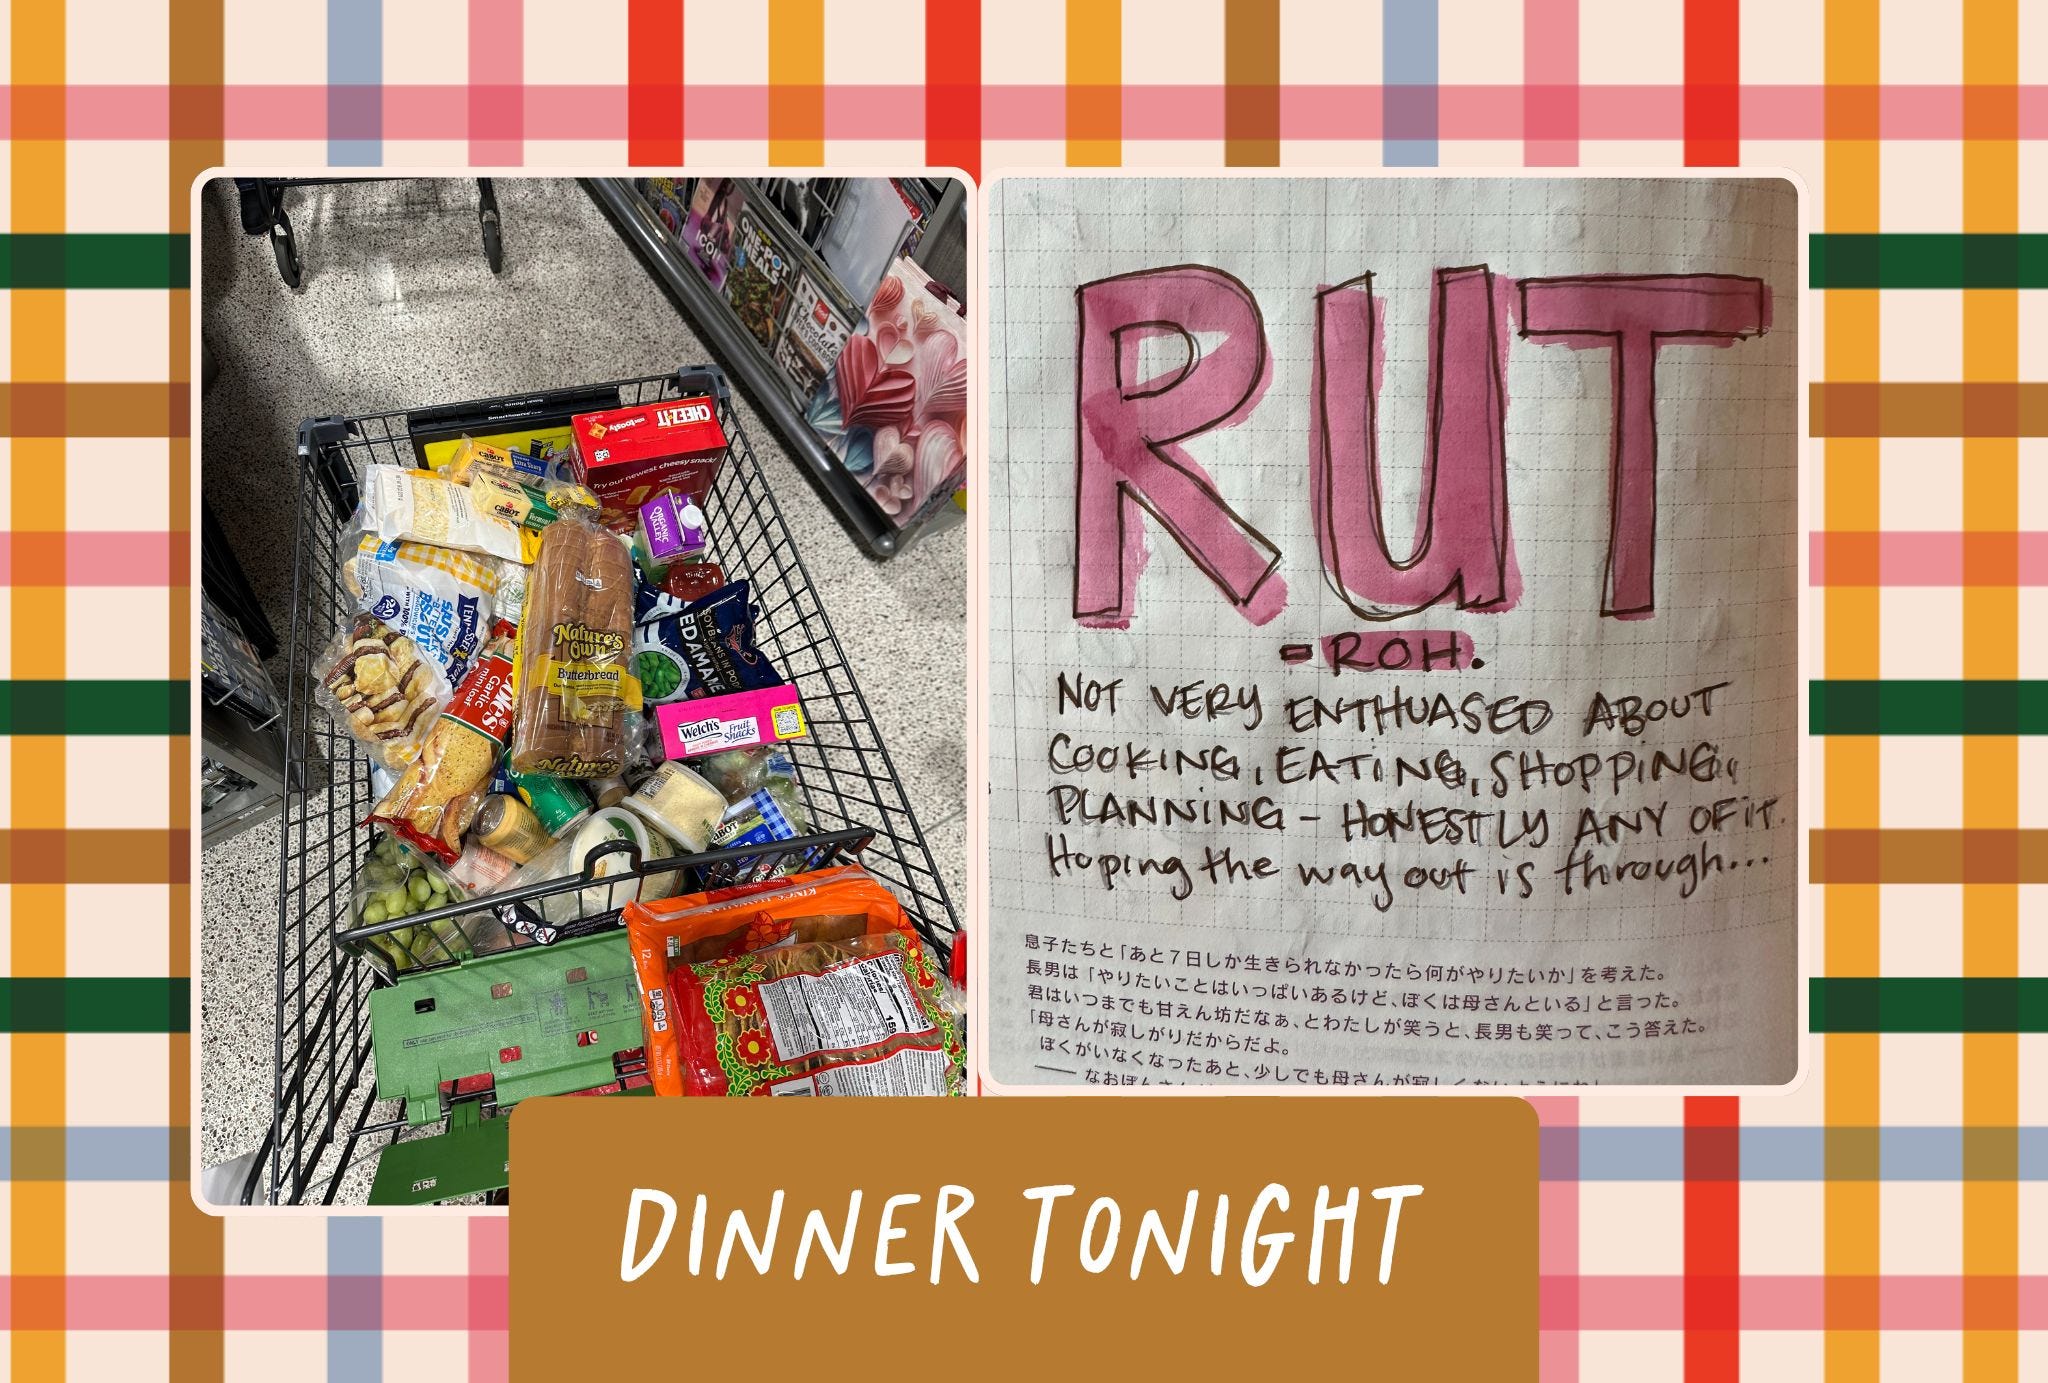 ICON
ONE-POT
MEALS
Chocolate
CHEEZ-IT
extra toasty
Try our newest cheesy snack!
CABOT
CABOT
Vermont
ORGANIC
VALLEY
EDAMAME
SOYBEANS IN PODS
Nature's
Own
Butterbread
Nature's
Own
Welch's
Fruit
Snacks
TENNESSEE
PRIDE
SAUSAGE
BISCUIT
Cole's
Garlic
mini loaf
CABOT
KING'S HAWAIIAN
RUT
-ROH.
NOT VERY ENTHUASED ABOUT
COOKING, EATING, SHOPPING,
PLANNING - HONESTLY ANY OF IT.
Hoping the way out is through...
息子たちと「あと7日しか生きられなかったら何がやりたいか」を考えた。
長男は「やりたいことはいっぱいあるけど、ぼくは母さんといる」と言った。
君はいつまでも甘えん坊だなぁ、とわたしが笑うと、長男も笑って、こう答えた。
「母さんが寂しがりだからだよ。
ぼくがいなくなったあと、少しでも母さんが寂しくないようにね」
DINNER TONIGHT